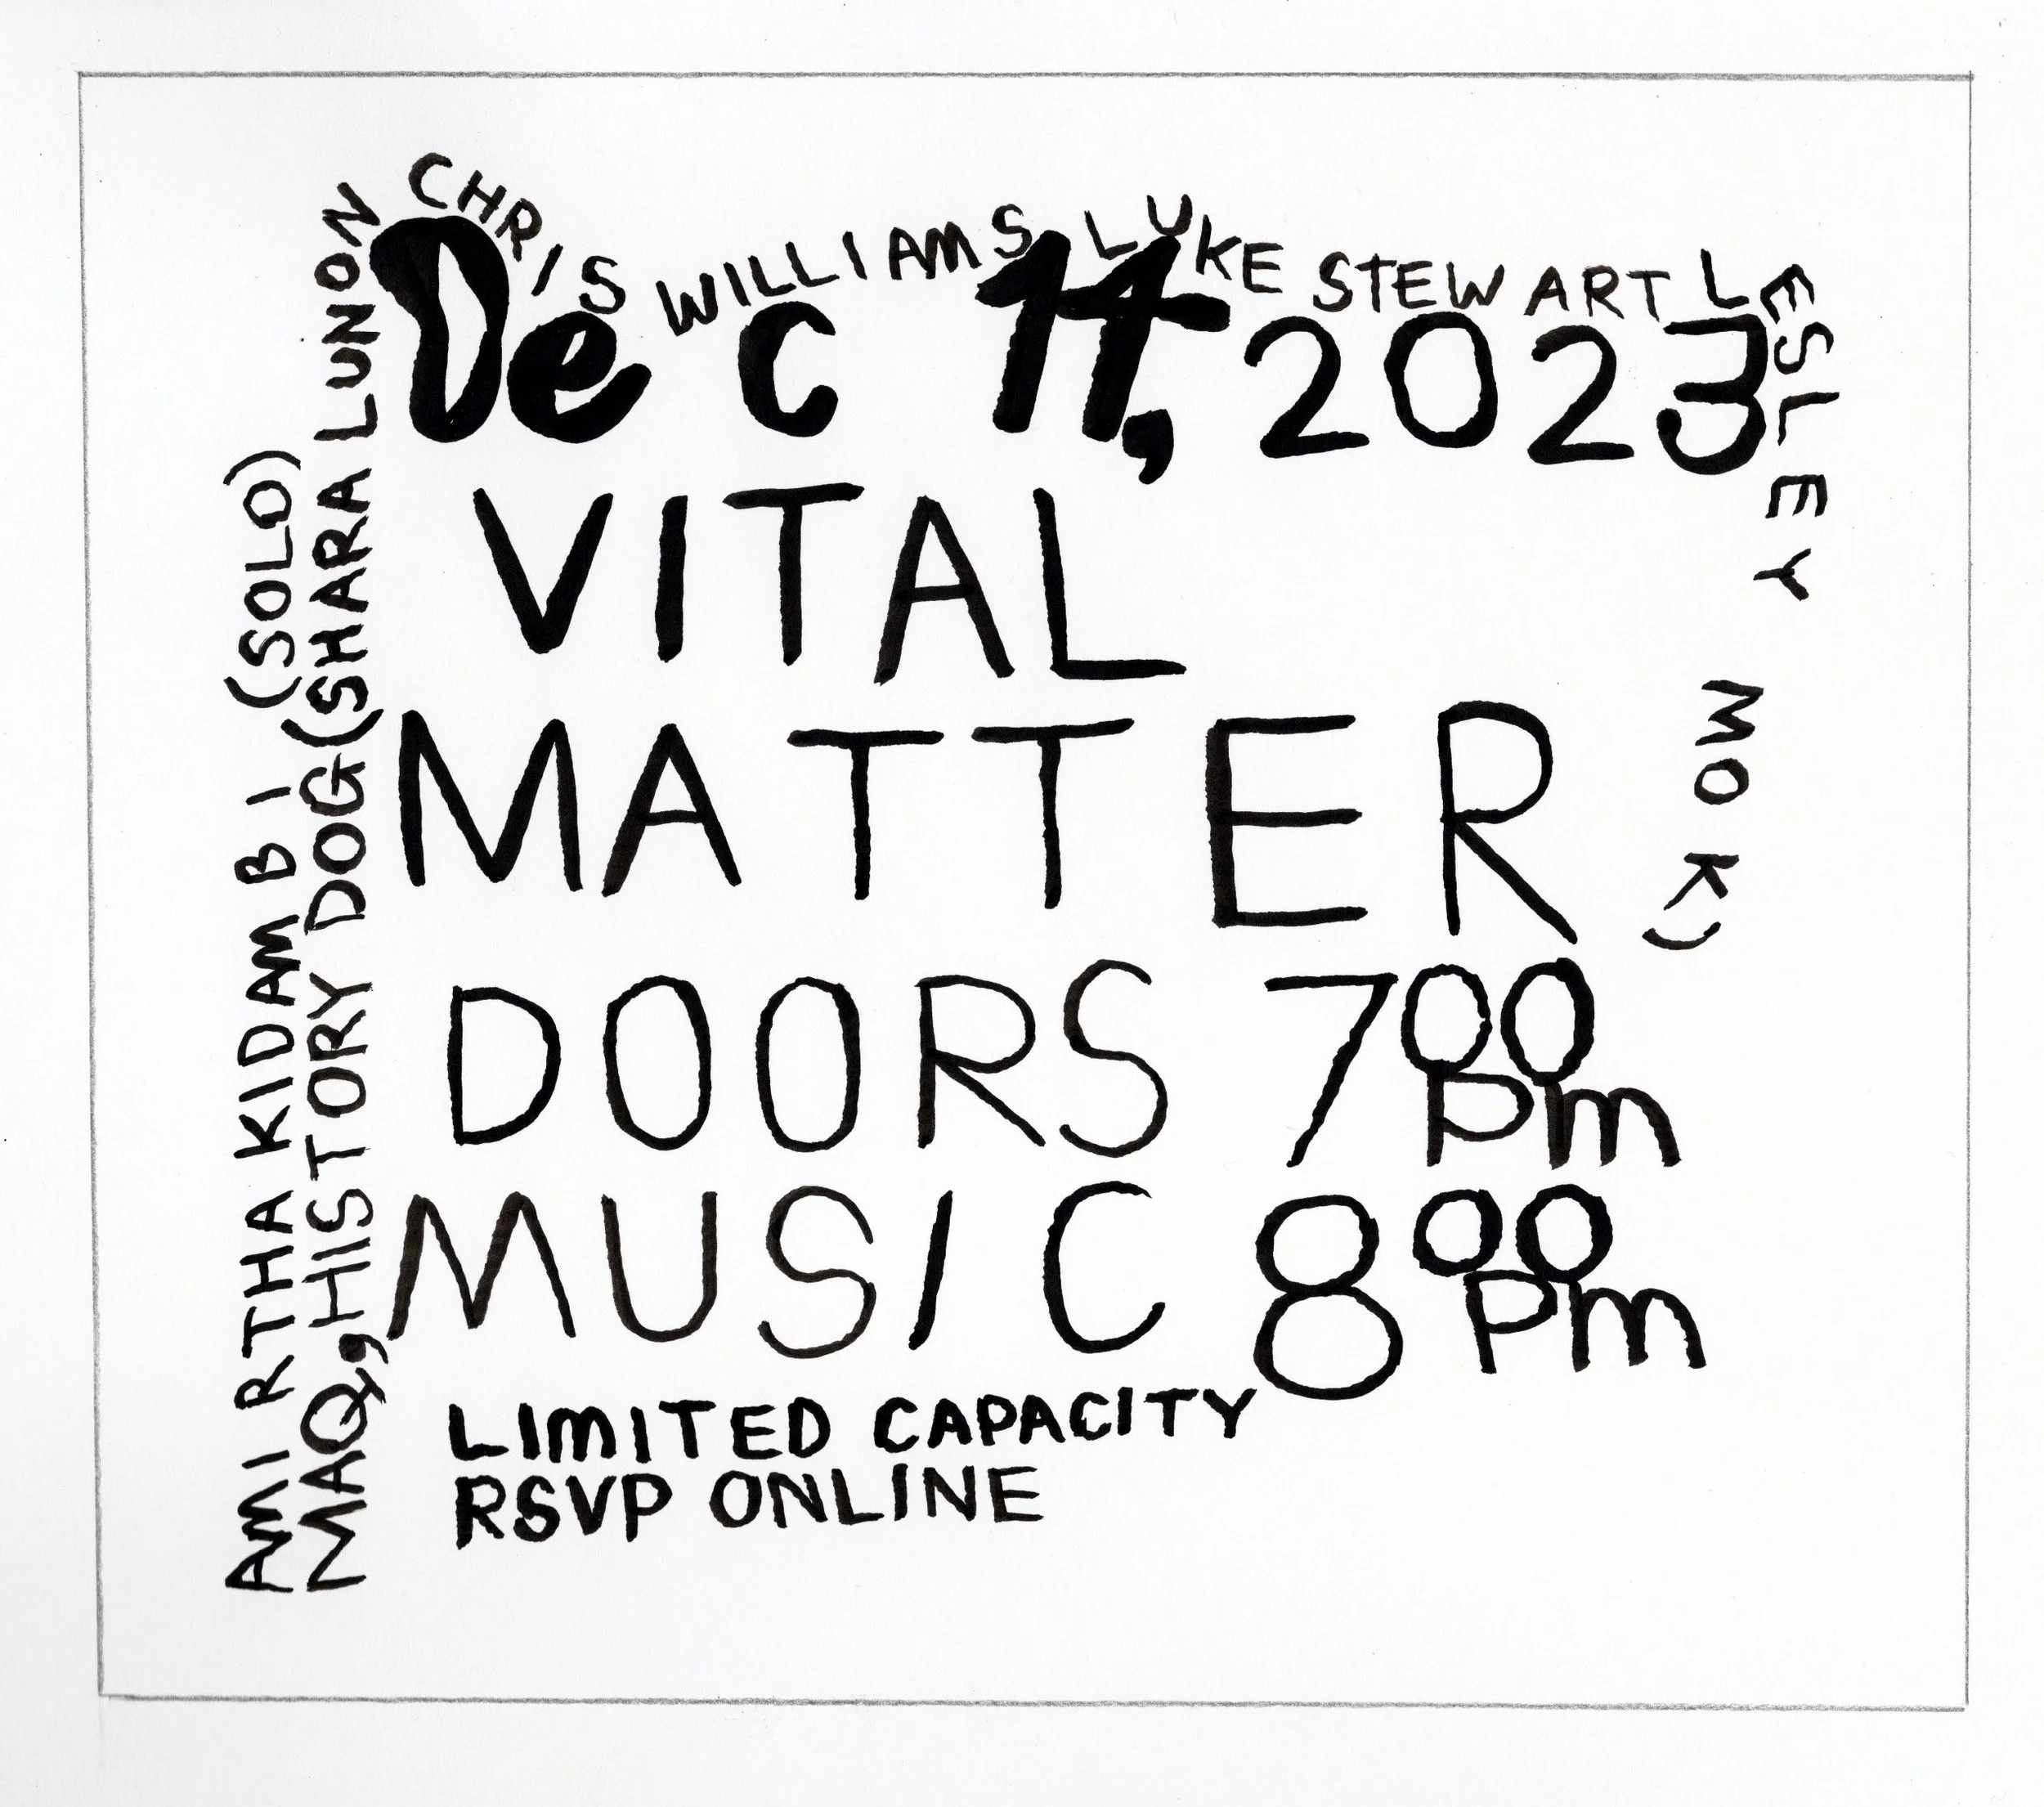 AMIRTHA KIDAMBI (SOLO)
MAQ, HISTORY DOG (SHARA LUNON CHRIS WILLIAMS LUKE STEWART LESLEY MOK)
Dec 14, 2023
VITAL
MATTER
DOORS 700 Pm
MUSIC 800 Pm
LIMITED CAPACITY
RSVP ONLINE